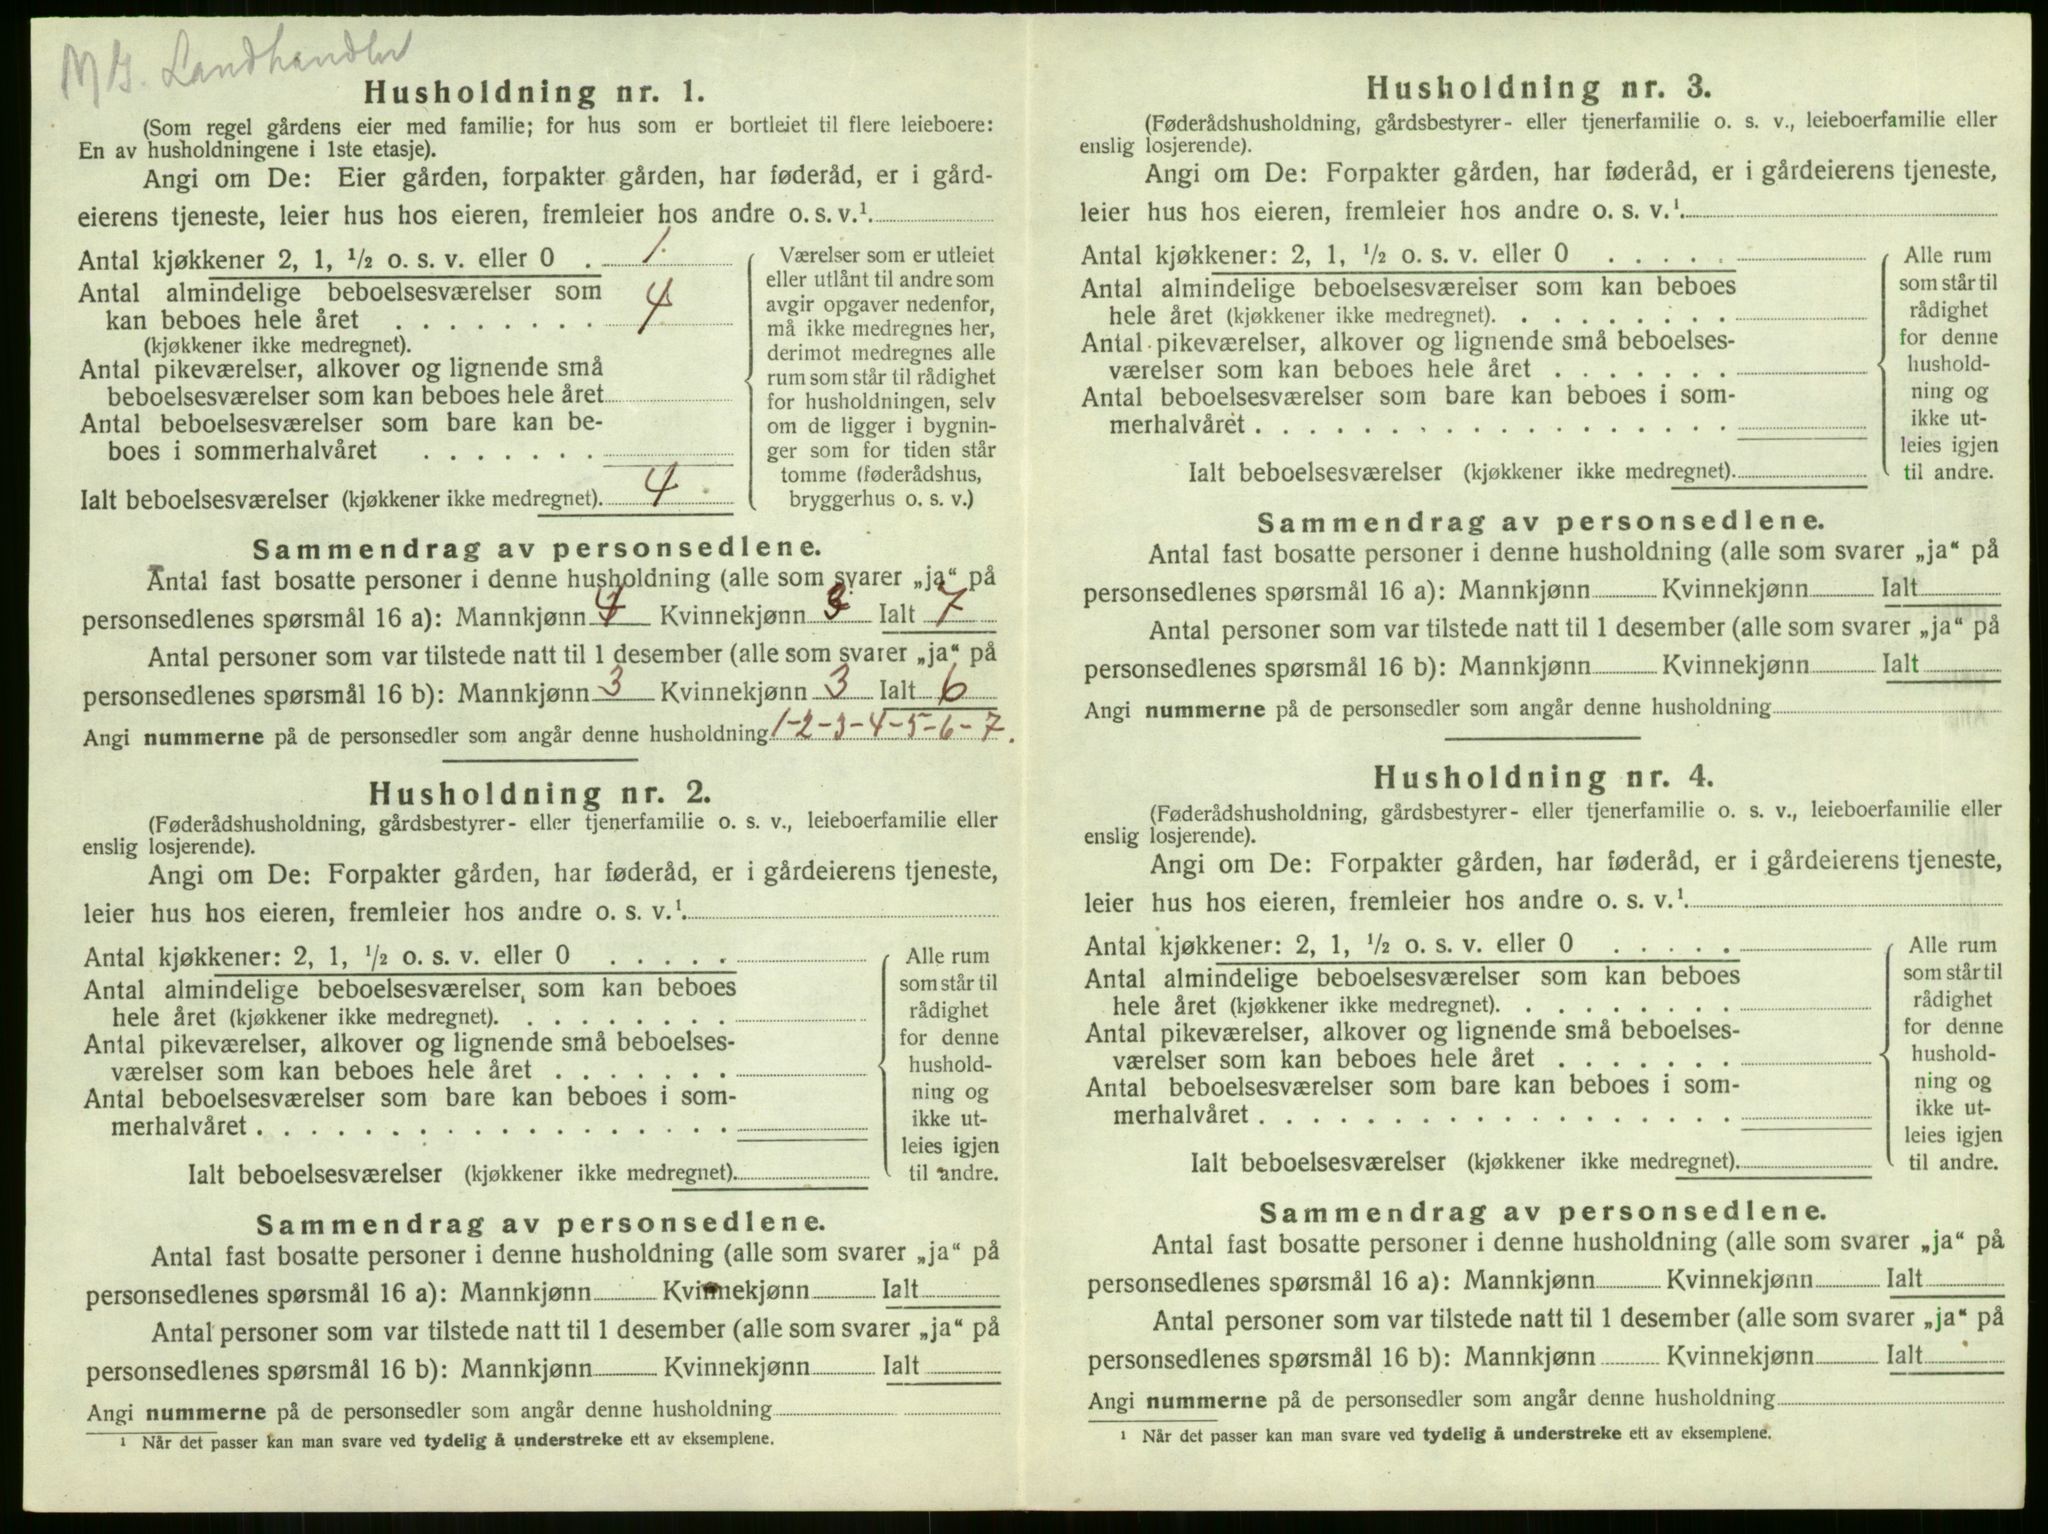 M G. Landhandler
Husholdning nr. 1.
(Som regel gårdens eier med familie; for hus som er bortleiet til flere leieboere:
En av husholdningene i 1ste etasje).
Angi om De: Eier gården, forpakter gården, har føderåd, er i gård-
eierens tjeneste, leier hus hos eieren, fremleier hos andre o. s. v.¹.
Antal kjøkkener 2, 1, ½ o. s. v. eller 0 . 1.
Antal almindelige beboelsesværelser som
kan beboes hele året . . . . . . . . 4
(kjøkkener ikke medregnet).
Antal pikeværelser, alkover og lignende små
beboelsesværelser som kan beboes hele året
Antal beboelsesværelser som bare kan be-
boes i sommerhalvåret . . . . . . .
Ialt beboelsesværelser (kjøkkener ikke medregnet). 4
Værelser som er utleiet
eller utlånt til andre som
avgir opgaver nedenfor,
må ikke medregnes her,
derimot medregnes alle
rum som står til rådighet
for husholdningen, selv
om de ligger i bygnin-
ger som for tiden står
tomme (føderådshus,
bryggerhus o. s. v.)
Sammendrag av personsedlene.
Antal fast bosatte personer i denne husholdning (alle som svarer „ja“ på
personsedlenes spørsmål 16 a): Mannkjønn 4 Kvinnekjønn 3 Ialt 7
Antal personer som var tilstede natt til 1 desember (alle som svarer „ja“ på
personsedlenes spørsmål 16 b): Mannkjønn 3 Kvinnekjønn 3 Ialt 6
Angi nummerne på de personsedler som angår denne husholdning 1-2-3-4-5-6-7.
Husholdning nr. 2.
(Føderådshusholdning, gårdsbestyrer- eller tjenerfamilie o. s. v., leieboerfamilie eller
enslig losjerende).
Angi om De: Forpakter gården, har føderåd, er i gårdeierens tjeneste,
leier hus hos eieren, fremleier hos andre o. s. v.¹.
Antal kjøkkener: 2, 1, ½ o. s. v. eller 0 . . . . .
Antal almindelige beboelsesværelser som kan beboes
hele året (kjøkkener ikke medregnet). . . . . . . . .
Antal pikeværelser, alkover og lignende små beboelses-
værelser som kan beboes hele året . . . . . . .
Antal beboelsesværelser som bare kan beboes i som-
merhalvåret . . . . . . . . . . . . . . . . . .
Ialt beboelsesværelser (kjøkkener ikke medregnet).
Alle rum
som står til
rådighet
for denne
hushold-
ning og
ikke ut-
leies igjen
til andre.
Sammendrag av personsedlene.
Antal fast bosatte personer i denne husholdning (alle som svarer „ja“ på
personsedlenes spørsmål 16 a): Mannkjønn Kvinnekjønn Ialt
Antal personer som var tilstede natt til 1 desember (alle som svarer „ja“ på
personsedlenes spørsmål 16 b): Mannkjønn Kvinnekjønn Ialt
Angi nummerne på de personsedler som angår denne husholdning
¹ Når det passer kan man svare ved tydelig å understreke ett av eksemplene.
Husholdning nr. 3.
(Føderådshusholdning, gårdsbestyrer- eller tjenerfamilie o. s. v., leieboerfamilie eller
enslig losjerende).
Angi om De: Forpakter gården, har føderåd, er i gårdeierens tjeneste,
leier hus hos eieren, fremleier hos andre o. s. v.¹.
Antal kjøkkener: 2, 1, ½ o. s. v. eller 0 . . . . .
Antal almindelige beboelsesværelser som kan beboes
hele året (kjøkkener ikke medregnet). . . . . . . . .
Antal pikeværelser, alkover og lignende små beboelses-
værelser som kan beboes hele året . . . . . . .
Antal beboelsesværelser som bare kan beboes i som-
merhalvåret . . . . . . . . . . . . . . . . . .
Ialt beboelsesværelser (kjøkkener ikke medregnet).
Alle rum
som står til
rådighet
for denne
hushold-
ning og
ikke ut-
leies igjen
til andre.
Sammendrag av personsedlene.
Antal fast bosatte personer i denne husholdning (alle som svarer „ja“ på
personsedlenes spørsmål 16 a): Mannkjønn Kvinnekjønn Ialt
Antal personer som var tilstede natt til 1 desember (alle som svarer „ja“ på
personsedlenes spørsmål 16 b): Mannkjønn Kvinnekjønn Ialt
Angi nummerne på de personsedler som angår denne husholdning
Husholdning nr. 4.
(Føderådshusholdning, gårdsbestyrer- eller tjenerfamilie o. s. v., leieboerfamilie eller
enslig losjerende).
Angi om De: Forpakter gården, har føderåd, er i gårdeierens tjeneste,
leier hus hos eieren, fremleier hos andre o. s. v.¹.
Antal kjøkkener: 2, 1, ½ o. s. v. eller 0 . . . . .
Antal almindelige beboelsesværelser som kan beboes
hele året (kjøkkener ikke medregnet). . . . . . . . .
Antal pikeværelser, alkover og lignende små beboelses-
værelser som kan beboes hele året . . . . . . .
Antal beboelsesværelser som bare kan beboes i som-
merhalvåret . . . . . . . . . . . . . . . . . .
Ialt beboelsesværelser (kjøkkener ikke medregnet).
Alle rum
som står til
rådighet
for denne
hushold-
ning og
ikke ut-
leies igjen
til andre.
Sammendrag av personsedlene.
Antal fast bosatte personer i denne husholdning (alle som svarer „ja“ på
personsedlenes spørsmål 16 a): Mannkjønn Kvinnekjønn Ialt
Antal personer som var tilstede natt til 1 desember (alle som svarer „ja“ på
personsedlenes spørsmål 16 b): Mannkjønn Kvinnekjønn Ialt
Angi nummerne på de personsedler som angår denne husholdning
¹ Når det passer kan man svare ved tydelig å understreke ett av eksemplene.